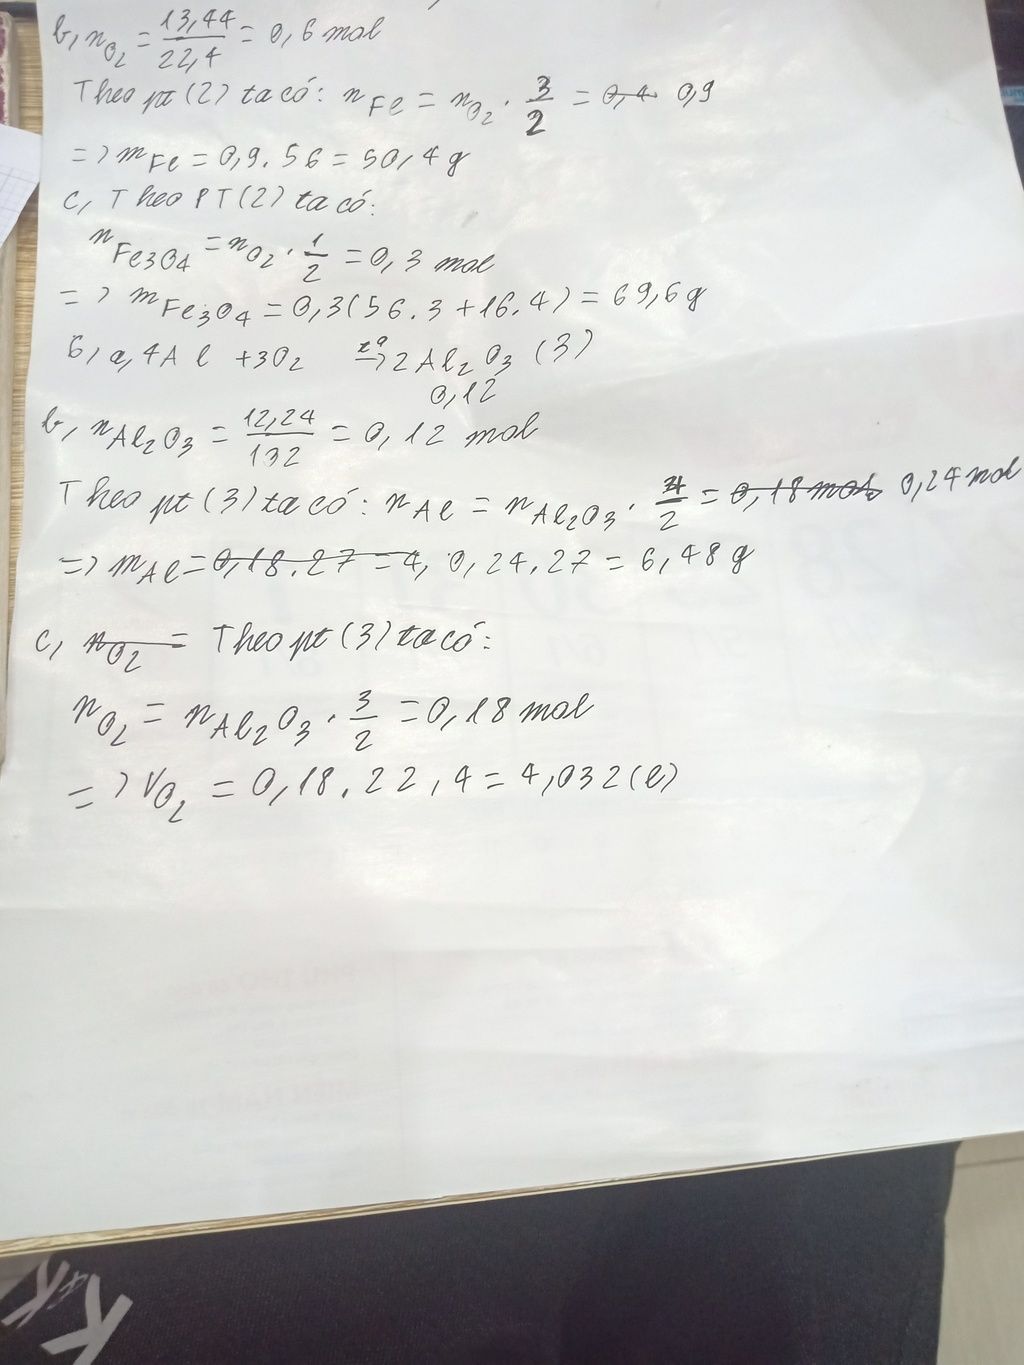 b, nO2 = 13,44/22,4 = 0,6 mol
Theo pt (2) ta có: nFe = nO2 . 3/2 = 0,4 0,9
=> mFe = 0,9 . 56 = 50,4 g
c, Theo PT (2) ta có:
nFe3O4 = nO2 . 1/2 = 0,3 mol
=> mFe3O4 = 0,3(56.3 + 16.4) = 69,6 g
6, a, 4Al + 3O2 t° → 2Al2O3 (3)
0,12
b, nAl2O3 = 12,24/132 = 0,12 mol
Theo pt (3) ta có: nAl = nAl2O3 . 4/2 = 0,18 mol 0,24 mol
=> mAl = 0,18 . 27 = 4, 0,24 . 27 = 6,48 g
c, nO2 = Theo pt (3) ta có:
nO2 = nAl2O3 . 3/2 = 0,18 mol
=> VO2 = 0,18 . 22,4 = 4,032 (l)